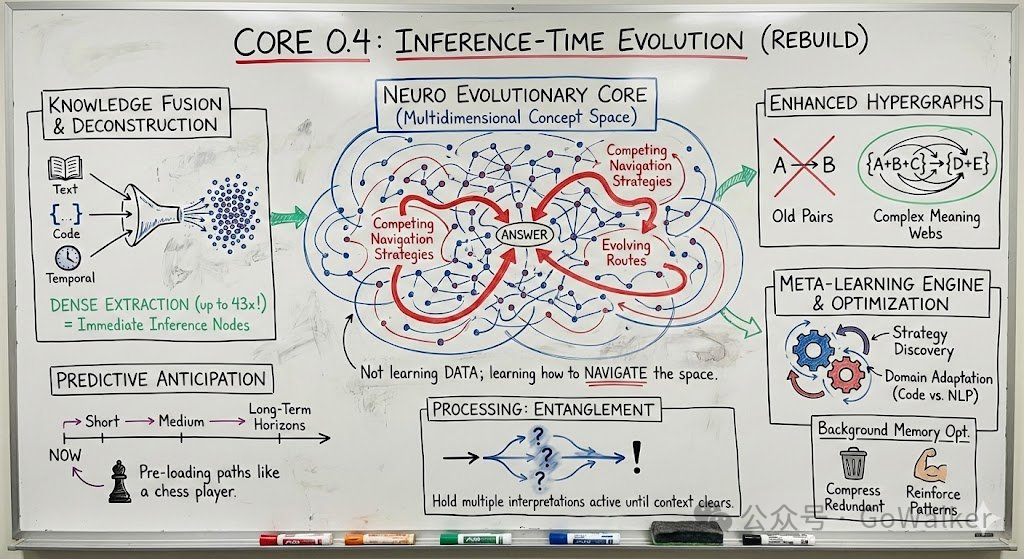 CORE 0.4: INFERENCE-TIME EVOLUTION (REBUILD)
KNOWLEDGE FUSION
& DECONSTRUCTION
Text
{...}
Code
Temporal
DENSE EXTRACTION (up to 43x!)
= Immediate Inference Nodes
NEURO EVOLUTIONARY CORE
(Multidimensional Concept Space)
Competing
Navigation
Strategies
Competing
Navigation
Strategies
ANSWER
Evolving
Routes
Not learning DATA; learning how to NAVIGATE the space.
ENHANCED HYPERGRAPHS
A → B
Old Pairs
{A+B+C}→{D+E}
Complex Meaning
Webs
META-LEARNING ENGINE
& OPTIMIZATION
Strategy
Discovery
Domain Adaptation
(Code vs. NLP)
Background Memory Opt.
Compress
Redundant
Reinforce
Patterns
PREDICTIVE ANTICIPATION
Short → Medium → Long-Term
Horizons
NOW
Pre-loading paths like
a chess player.
PROCESSING: ENTANGLEMENT
?
?
?
!
Hold multiple interpretations active until context clears.
公众号 · GoWalker